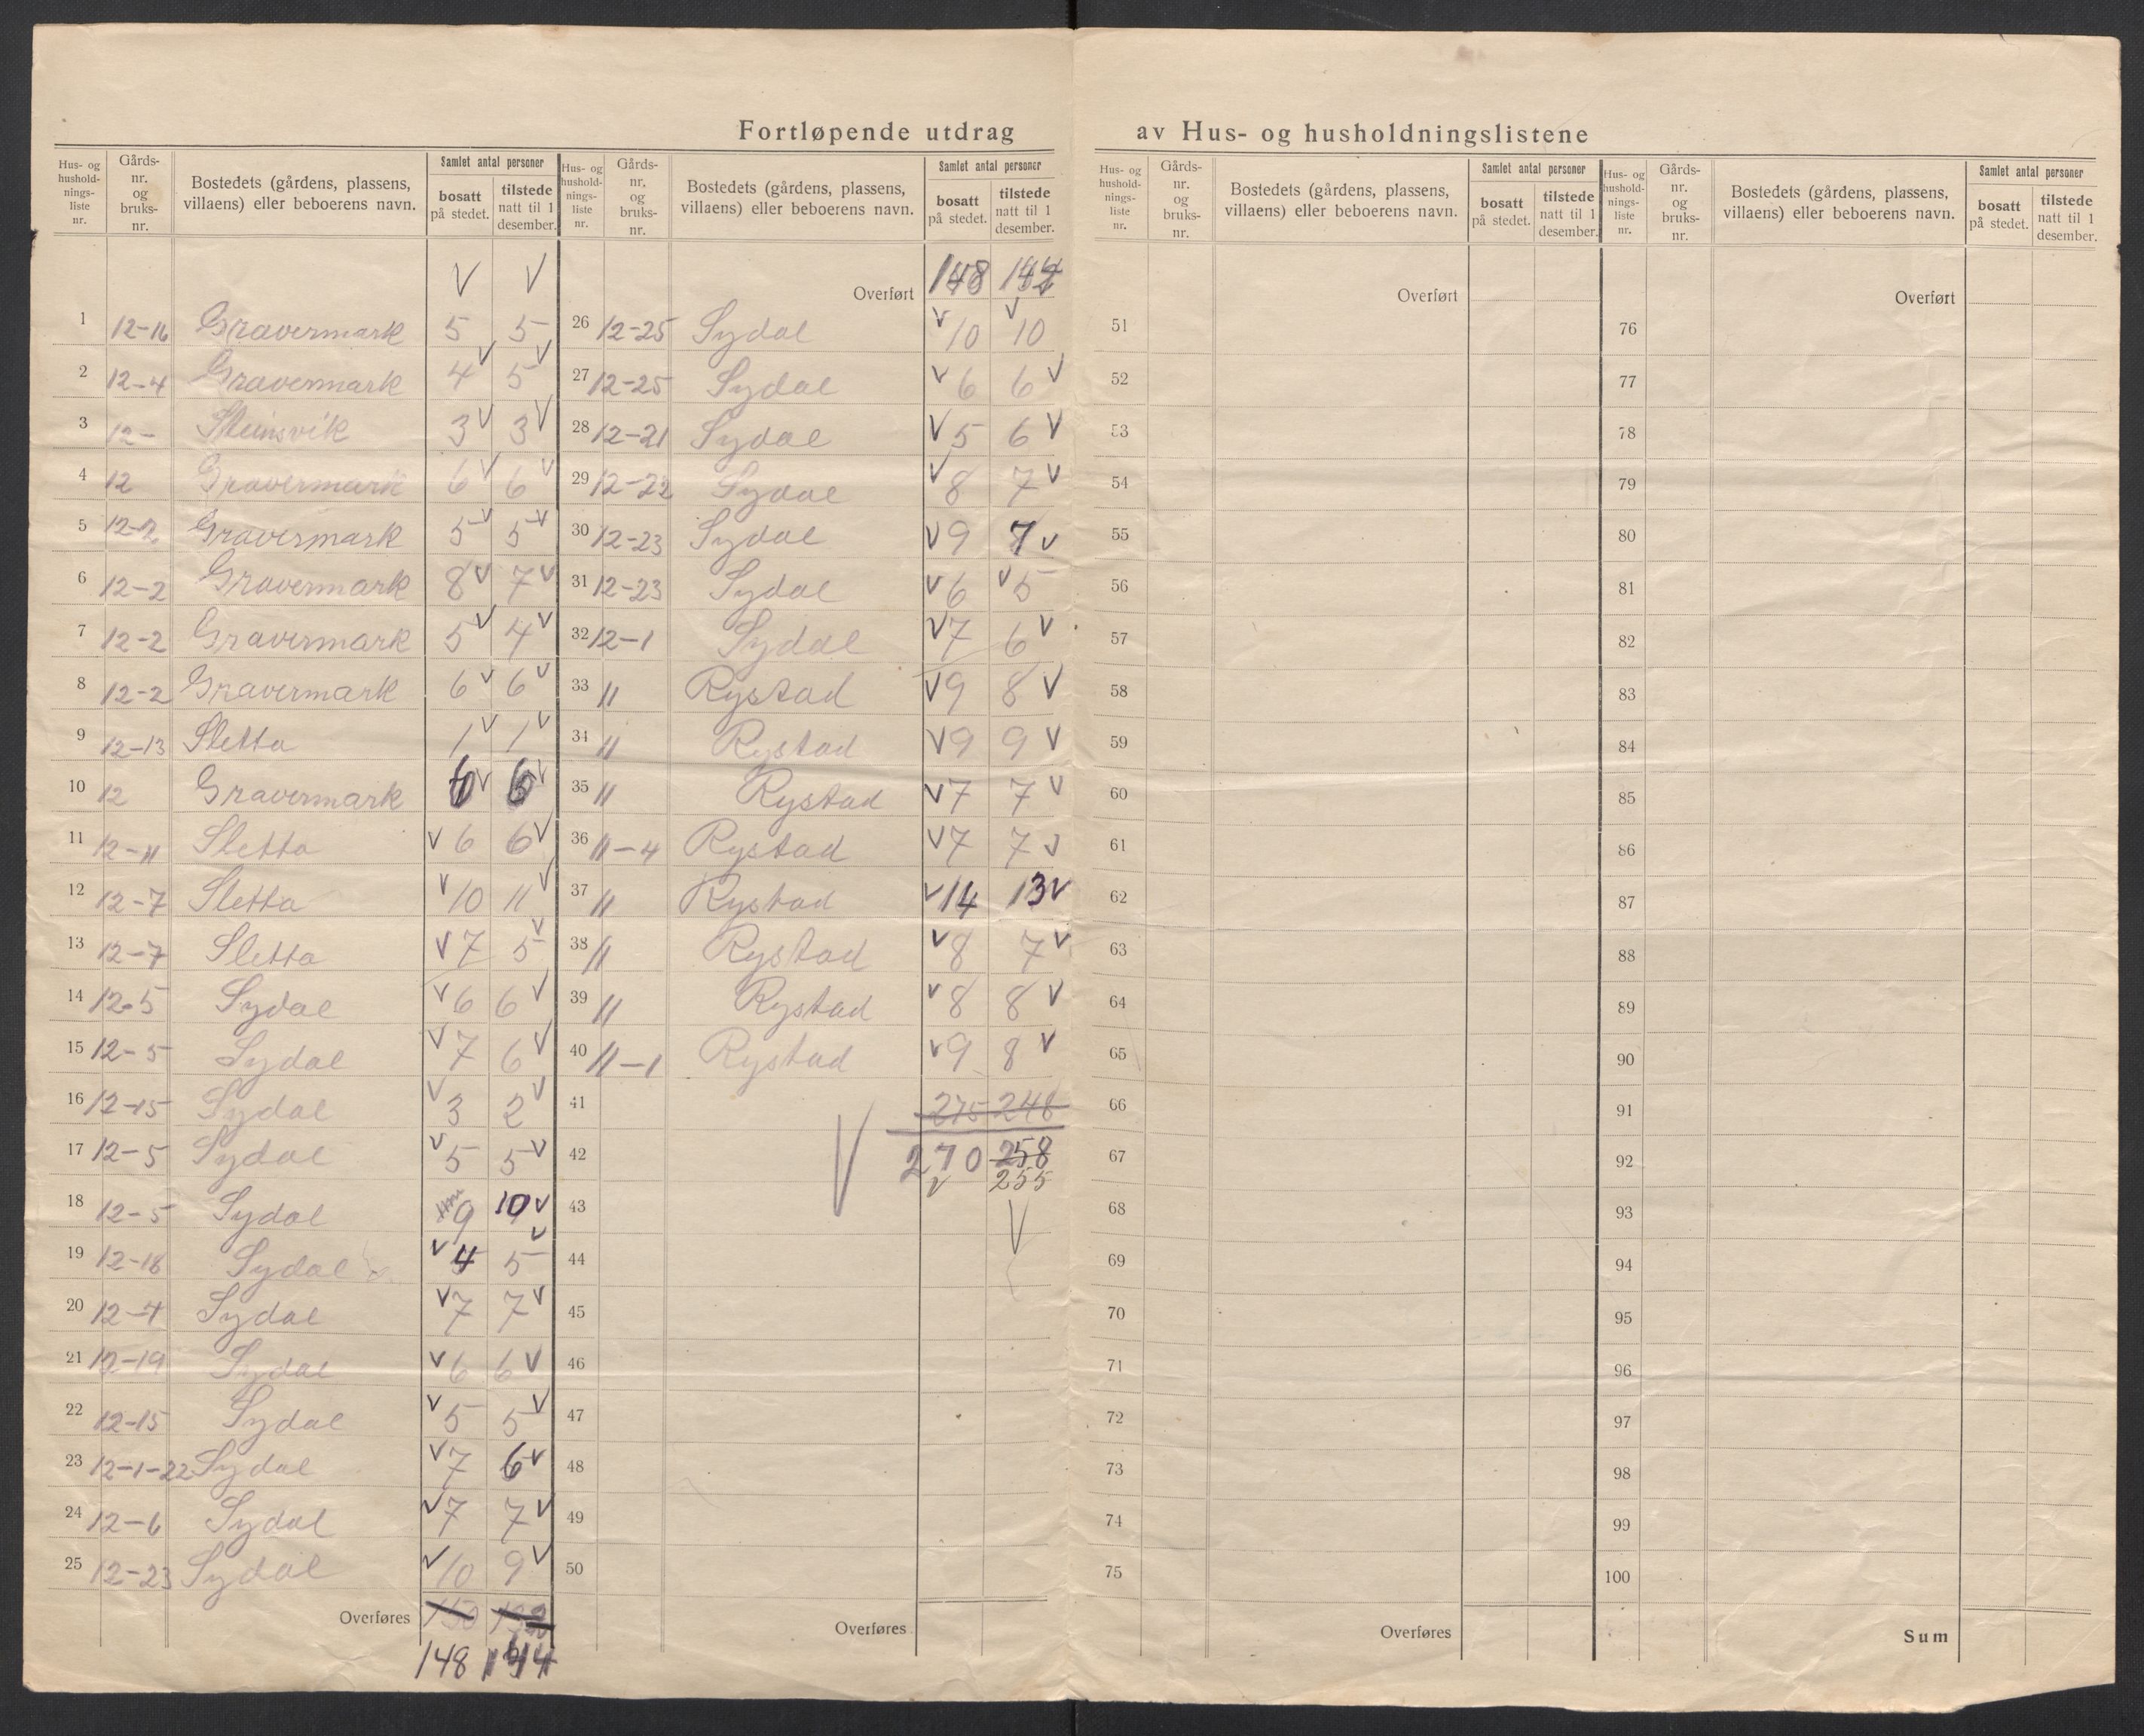 Fortløpende utdrag av Hus- og husholdningslistene
Hus- og husholdnings-liste nr. Gårds-nr. og bruks-nr. Bostedets (gårdens, plassens, villaens) eller beboerens navn. Samlet antal personer bosatt på stedet. tilstede natt til 1 desember.
V V
1 12-16 Gravermark 5 5
2 12-4 Gravermark 4 V 5 V
3 12- Steinsvik 3 V 3 V
4 12 Gravermark 6 V 6 V
5 12-2 Gravermark 5 V 5 V
6 12-2 Gravermark 8 V 7 V
7 12-2 Gravermark 5 V 4 V
8 12-2 Gravermark 6 V 6 V
9 12-13 Sletta 1 V 1 V
10 12 Gravermark 6 V 6 V
11 12-11 Sletta V 6 6 V
12 12-7 Sletta V 10 11 V
13 12-7 Sletta V 7 5 V
14 12-5 Sydal V 6 6 V
15 12-5 Sydal V 7 6 V
16 12-15 Sydal V 3 2 V
17 12-5 Sydal V 5 5 V
18 12-5 Sydal 9 10 V
19 12-18 Sydal V 4 5 V
20 12-4 Sydal V 7 7 V
21 12-19 Sydal V 6 6 V
22 12-15 Sydal V 5 5 V
23 12-1-22 Sydal V 7 6 V
24 12-6 Sydal V 7 7 V
25 12-23 Sydal V 10 9 V
Overføres 150 132
148 144
Hus- og husholdnings-liste nr. Gårds-nr. og bruks-nr. Bostedets (gårdens, plassens, villaens) eller beboerens navn. Samlet antal personer bosatt på stedet. tilstede natt til 1 desember.
Overført 148 144
26 12-25 Sydal V 10 V 10
27 12-25 Sydal V 6 6 V
28 12-21 Sydal V 5 6 V
29 12-22 Sydal V 8 7 V
30 12-23 Sydal V 9 7 V
31 12-23 Sydal V 6 V 5
32 12-1 Sydal V 7 6 V
33 11 Rystad V 9 8 V
34 11 Rystad V 9 9 V
35 11 Rystad V 7 7 V
36 11-4 Rystad V 7 7 V
37 11 Rystad V 14 13 V
38 11 Rystad V 8 7 V
39 11 Rystad V 8 8 V
40 11-1 Rystad V 9 8 V
41 275 248
42 V 270 258
V 255
43 V
44
45
46
47
48
49
50
Overføres
Hus- og husholdnings-liste nr. Gårds-nr. og bruks-nr. Bostedets (gårdens, plassens, villaens) eller beboerens navn. Samlet antal personer bosatt på stedet. tilstede natt til 1 desember.
Overført
51
52
53
54
55
56
57
58
59
60
61
62
63
64
65
66
67
68
69
70
71
72
73
74
75
Overføres
Hus- og husholdnings-liste nr. Gårds-nr. og bruks-nr. Bostedets (gårdens, plassens, villaens) eller beboerens navn. Samlet antal personer bosatt på stedet. tilstede natt til 1 desember.
Overført
76
77
78
79
80
81
82
83
84
85
86
87
88
89
90
91
92
93
94
95
96
97
98
99
100
Sum